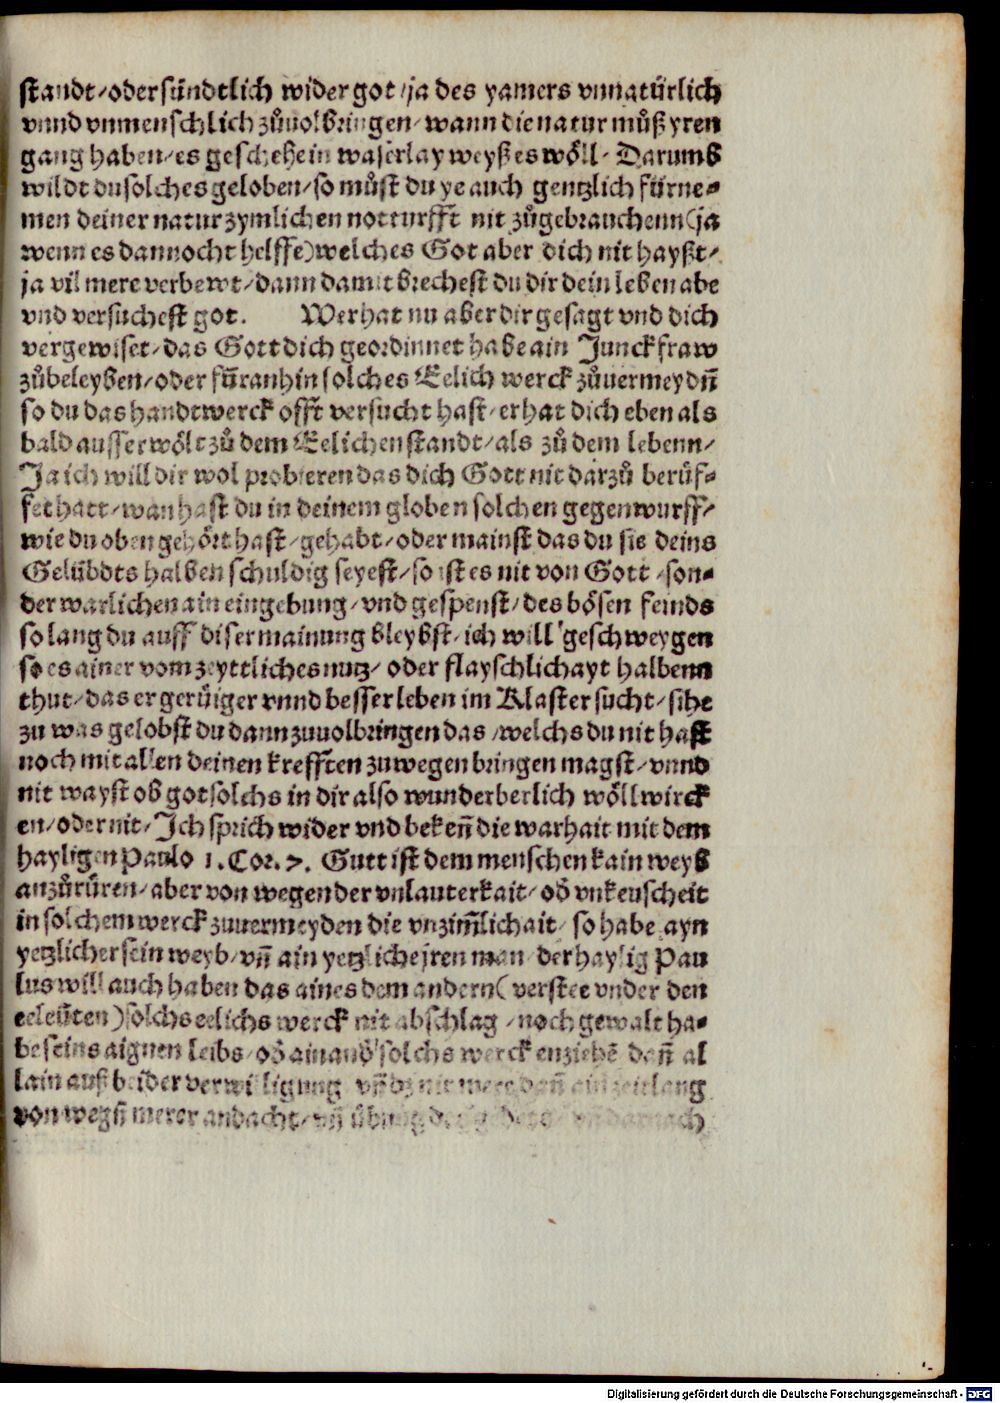 standt/oder sündtlich wider got/ja des yamers vnnatürlich
vnnd vnmenschlich zůuolbringen/wann die natur můß yren
gang haben/es geschehe in waserlay weyß es wöll. Darumb
wildt du solches geloben/so můst du ye auch gentzlich fürne-
men deiner natur zymlichen notturfft nit zůgebrauchenn(ja
wenn es dannocht helffe)welches Got aber dich nit hayßt/
ja vil mere verbewt/dann damit brechest du dir dein leben abe
vnd versuchest got. Wer hat nu aber dir gesagt vnd dich
vergewiset/das Gott dich geordinnet habe ain Junckfraw
zůbeleyben/oder fůranhin solches Eelich werck zůuermeydñ
so du das handtwerck offt versucht hast/er hat dich eben als
bald ausserwölt zů dem Eelichen standt/als zů dem lebenn/
Ja ich will dir wol probieren das dich Gott nit darzů berůf-
fet hatt/wan hast du in deinem globen solchen gegenwurff/
wie du oben gehört hast/gehabt/oder mainst das du sie deins
Gelübdts halben schuldig seyest/so ist es nit von Gott/son-
der warlichen ain eingebung/vnd gespenst/des bösen feinds
so lang du auff diser mainung bleybst/ich will geschweygen
so es ainer vom zeyttliches nutz/oder flayschlichayt halbenn
thut/das er gerůiger vnnd besser leben im Klaster sucht/sihe
zu was gelobst du dann zuuolbringen das/welchs du nit hast
noch mit allen deinen krefften zuwegen bringen magst/vnnd
nit wayst ob got solchs in dir also wunderberlich wöll wirck
en/oder nit/Ich sprich wider vnd bekeñ die warhait mit dem
hayligen Paulo 1.Cor.7. Gutt ist dem menschen kain weyb
anzůrüren/aber von wegen der vnlauterkait/od̄ vnkeuscheit
in solchem werck zuuermeyden die vnzim̃lichait/so habe ayn
yetzlicher sein weyb/vñ ain yetzliche jren man/der haylig Pau
lus will auch haben das aines dem andern(verstee vnder den
eeleüten)solchs eelichs werck nit abschlag/noch gewalt ha-
be seins aignen leibs/od̄ ainand̄ solchs werck enziehē dañ al
lain auß beider verwilligung vñ dz nit mere dañ ain zeitlang
von wegñ merer andacht/vñ übung
Digitalisierung gefördert durch die Deutsche Forschungsgemeinschaft - DFG